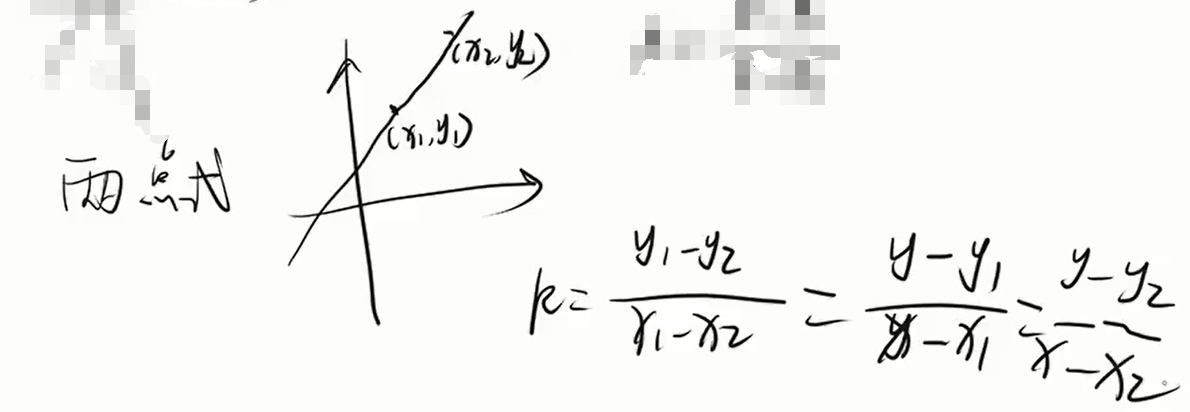 (x₂,y₂)
(x₁,y₁)
两点式
k = (y₁-y₂)/(x₁-x₂) = (y-y₁)/(x-x₁) = (y-y₂)/(x-x₂)